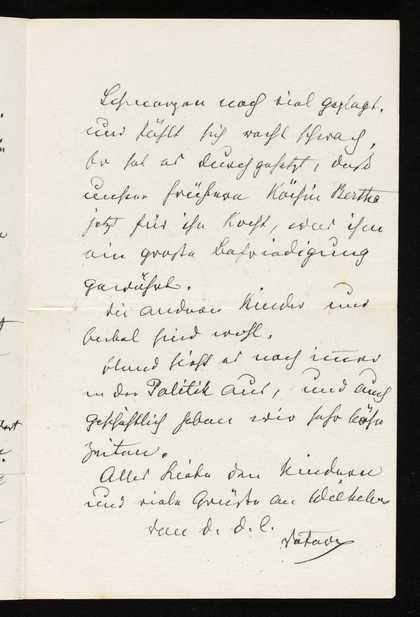 Schmerzen noch viel geplagt,
und fühlt sich recht schwach,
Er hat es durchgesetzt, daß
unsere frühere Köchin Bertha
jetzt für ihn kocht, was ihm
eine große Befriedigung
gewährt.
Die anderen Kinder und
sind wohl.
Elend sieht es noch immer
in der Politik aus, und auch
geschäftlich haben wir sehr böse
Zeiten.
Alles Liebe den Kindern
und viele Grüße an Wilhelm
von d. d. l.
Vater